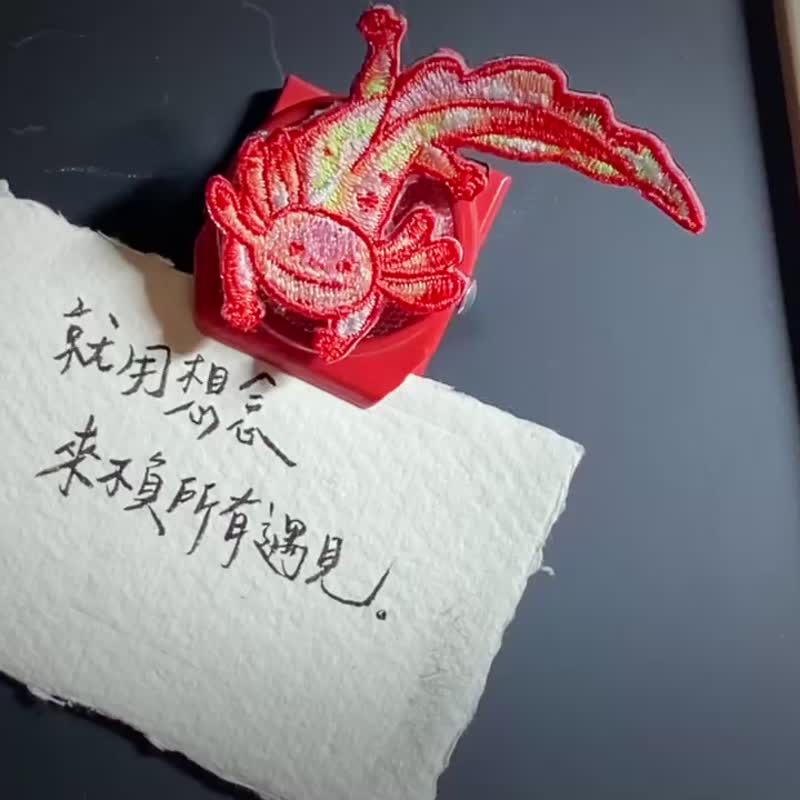 就用想念
來不負所有遇見。